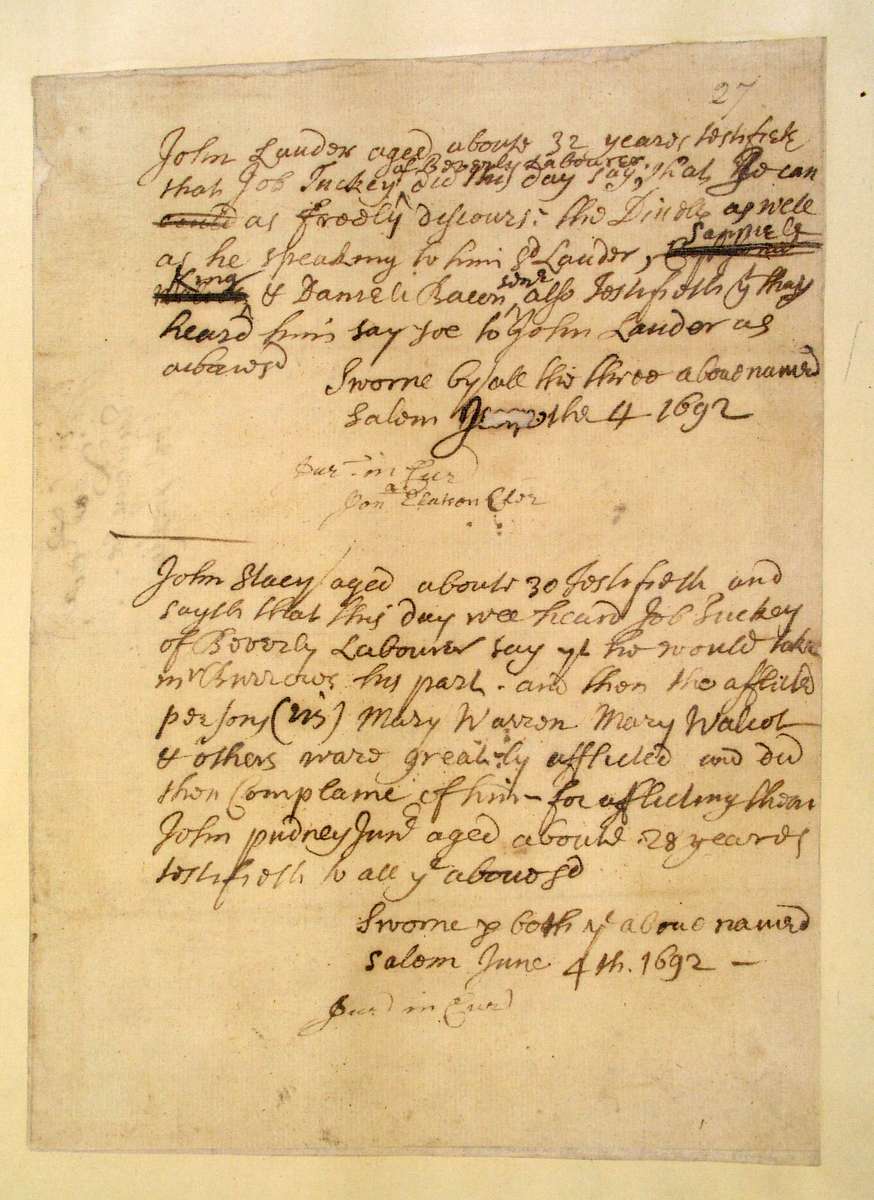 27
John Lander aged aboute 32 yeares testifieth
of Beverly Labourer
that Job Tuckey did this day say, that He can
could as freely discourse the Divell as well
as he speaking to him sd Lander, Samuele
King & Daniell Bacon senr also Testifieth yt thay
heard him say soe to John Lander as
abovesd
Sworne by all the three above named
Salem June the 4 1692
Jurat in Cur
Jonª Elatson Cler
John Stacy aged aboute 30 Testifieth and
sayth that this day wee heard Job Tuckey
of Beverly Labourer say yt he would take
mr Burrows his part. and then the afflicted
persons (viz) Mary Warren Mary Walcot
& others ware greatly afflicted and did
then Complaine of him for afflicting them
John pudney Junr aged aboute 28 yeares
testifieth to all ye abovesd
Sworne p both ye above named
Salem June 4th. 1692 —
Jurd in Curd